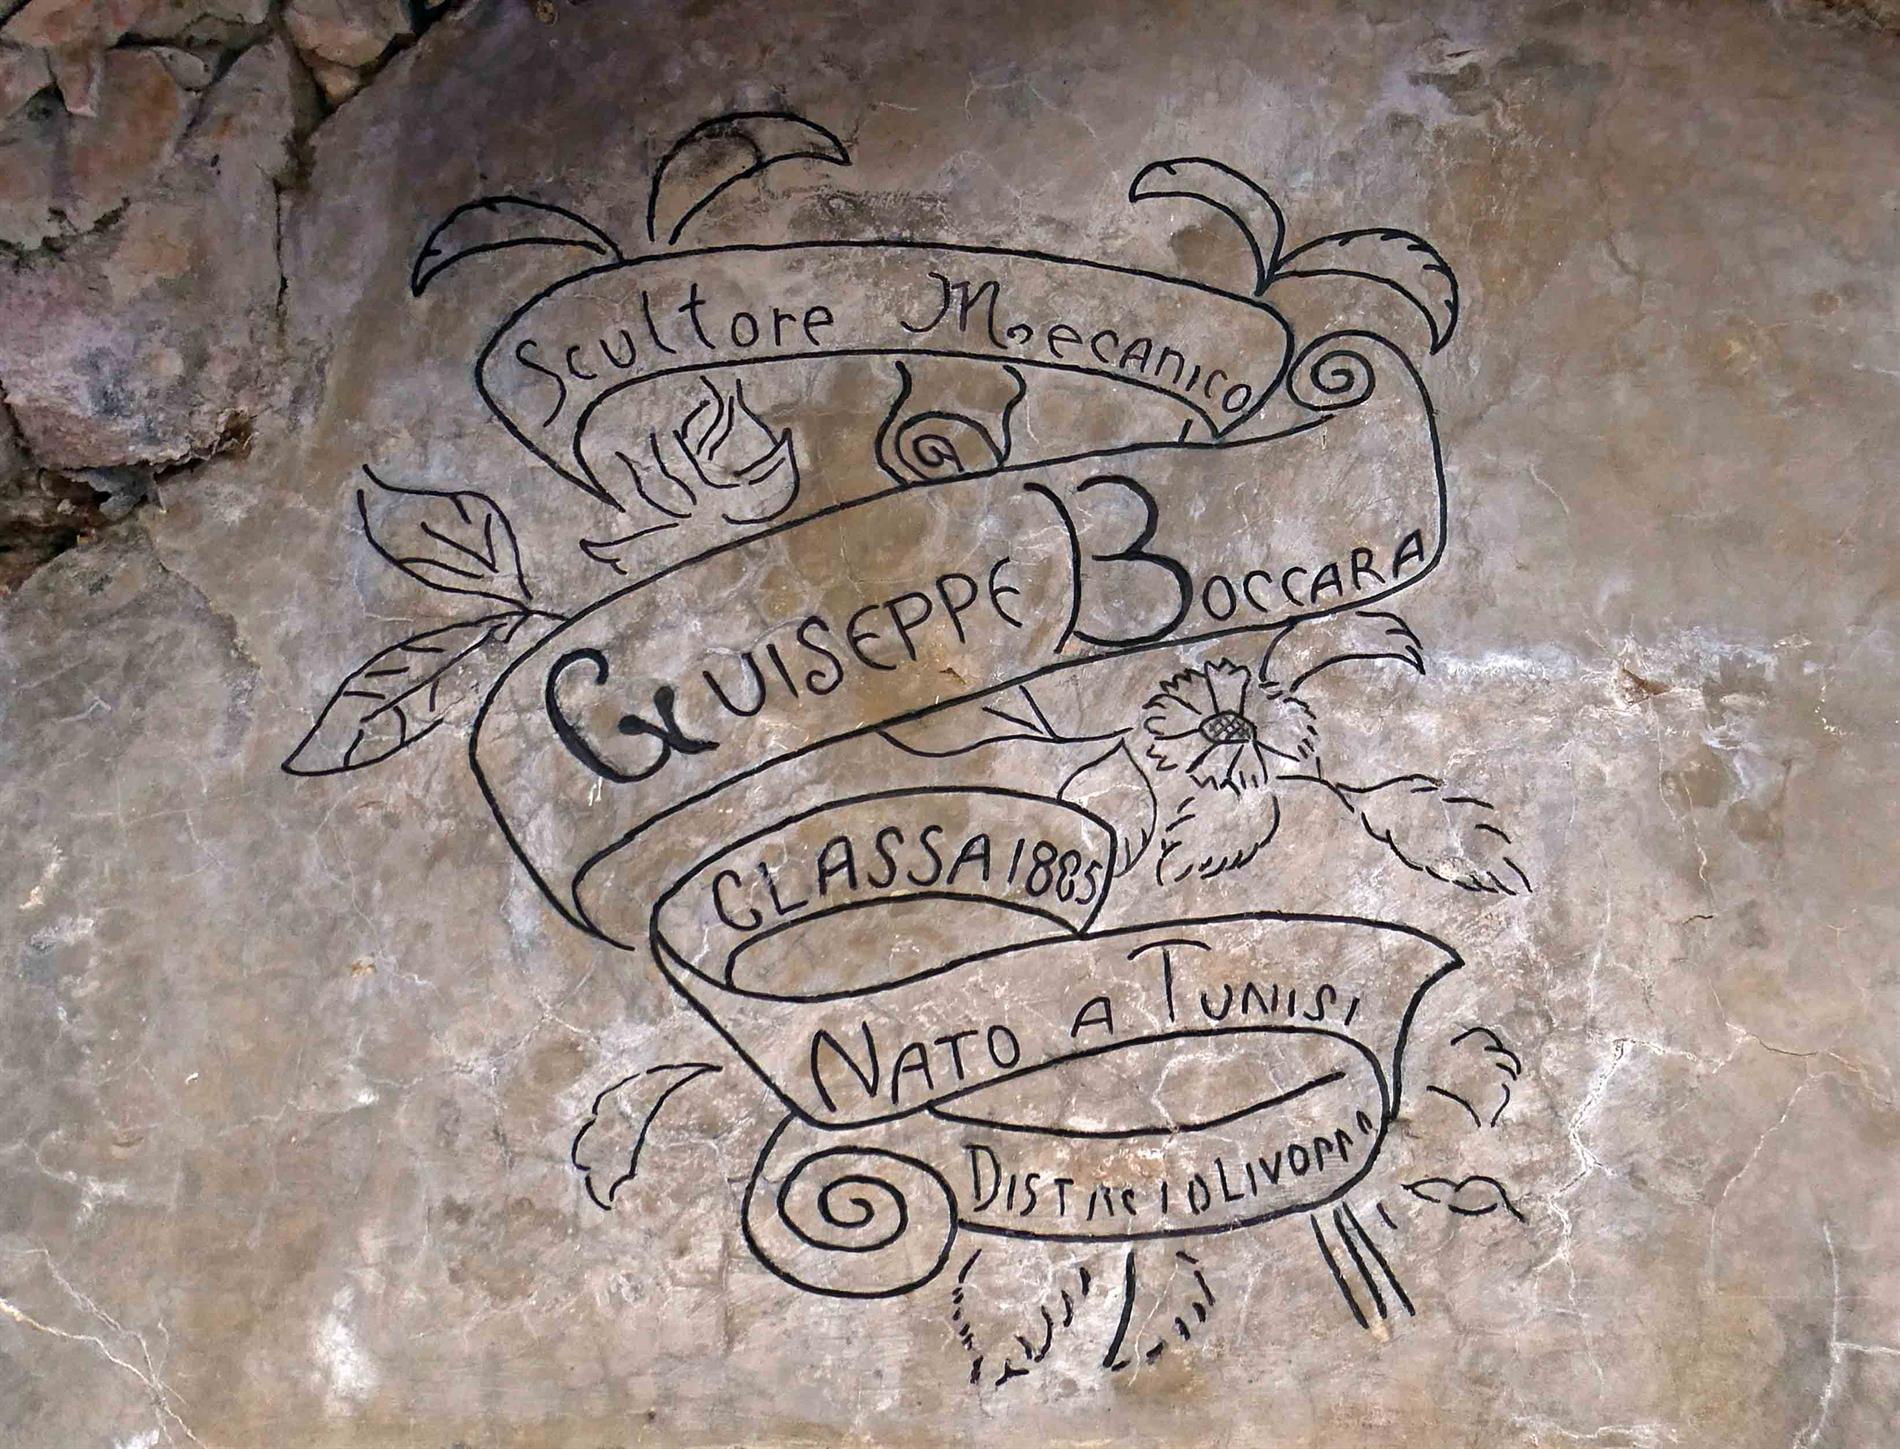 Scultore Meccanico
GIUSEPPE BOCCARA
CLASSA 1885
NATO A TUNISI
LIVORNO